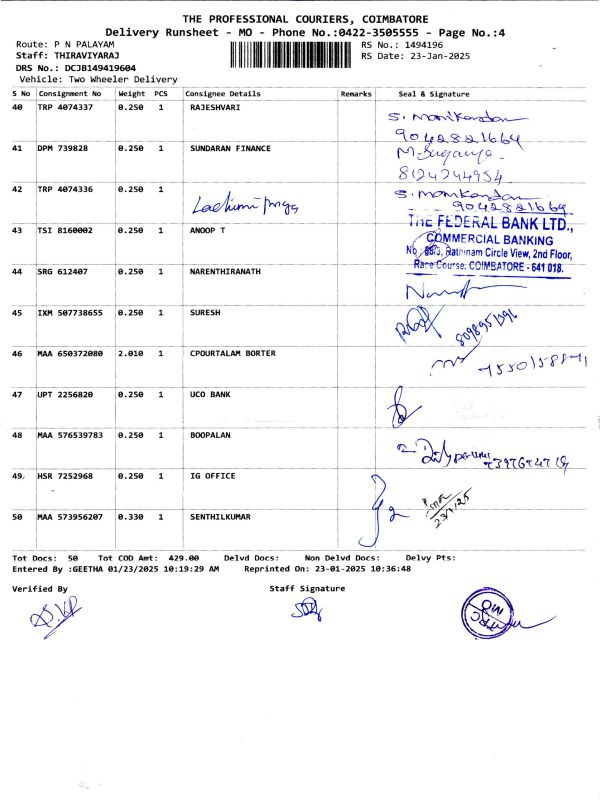 THE PROFESSIONAL COURIERS, COIMBATORE
Delivery Runsheet - MO - Phone No.:0422-3505555 - Page No.:4
Route: P N PALAYAM
RS No.: 1494196
Staff: THIRAVIYARAJ
RS Date: 23-Jan-2025
DRS No.: DCJB149419604
Vehicle: Two Wheeler Delivery
S No Consignment No Weight PCS Consignee Details Remarks Seal & Signature
40 TRP 4074337 0.250 1 RAJESHVARI
S. Manikandan
9042821664
41 DPM 739828 0.250 1 SUNDARAN FINANCE
M. Suganya
8124244954
42 TRP 4074336 0.250 1
S. Manikandan
9042821664
43 TSI 8160002 0.250 1 ANOOP T
THE FEDERAL BANK LTD.,
COMMERCIAL BANKING
Rathinam Circle View, 2nd Floor,
Race Course, COIMBATORE - 641 018.
44 SRG 612407 0.250 1 NARENTHIRANATH
45 IXM 507738655 0.250 1 SURESH
46 MAA 650372080 2.010 1 CPOURTALAM BORTER
47 UPT 2256820 0.250 1 UCO BANK
48 MAA 576539783 0.250 1 BOOPALAN
49 HSR 7252968 0.250 1 IG OFFICE
23/1/25
50 MAA 573956207 0.330 1 SENTHILKUMAR
Tot Docs: 50 Tot COD Amt: 429.00 Delvd Docs: Non Delvd Docs: Delvy Pts:
Entered By :GEETHA 01/23/2025 10:19:29 AM Reprinted On: 23-01-2025 10:36:48
Verified By
Staff Signature